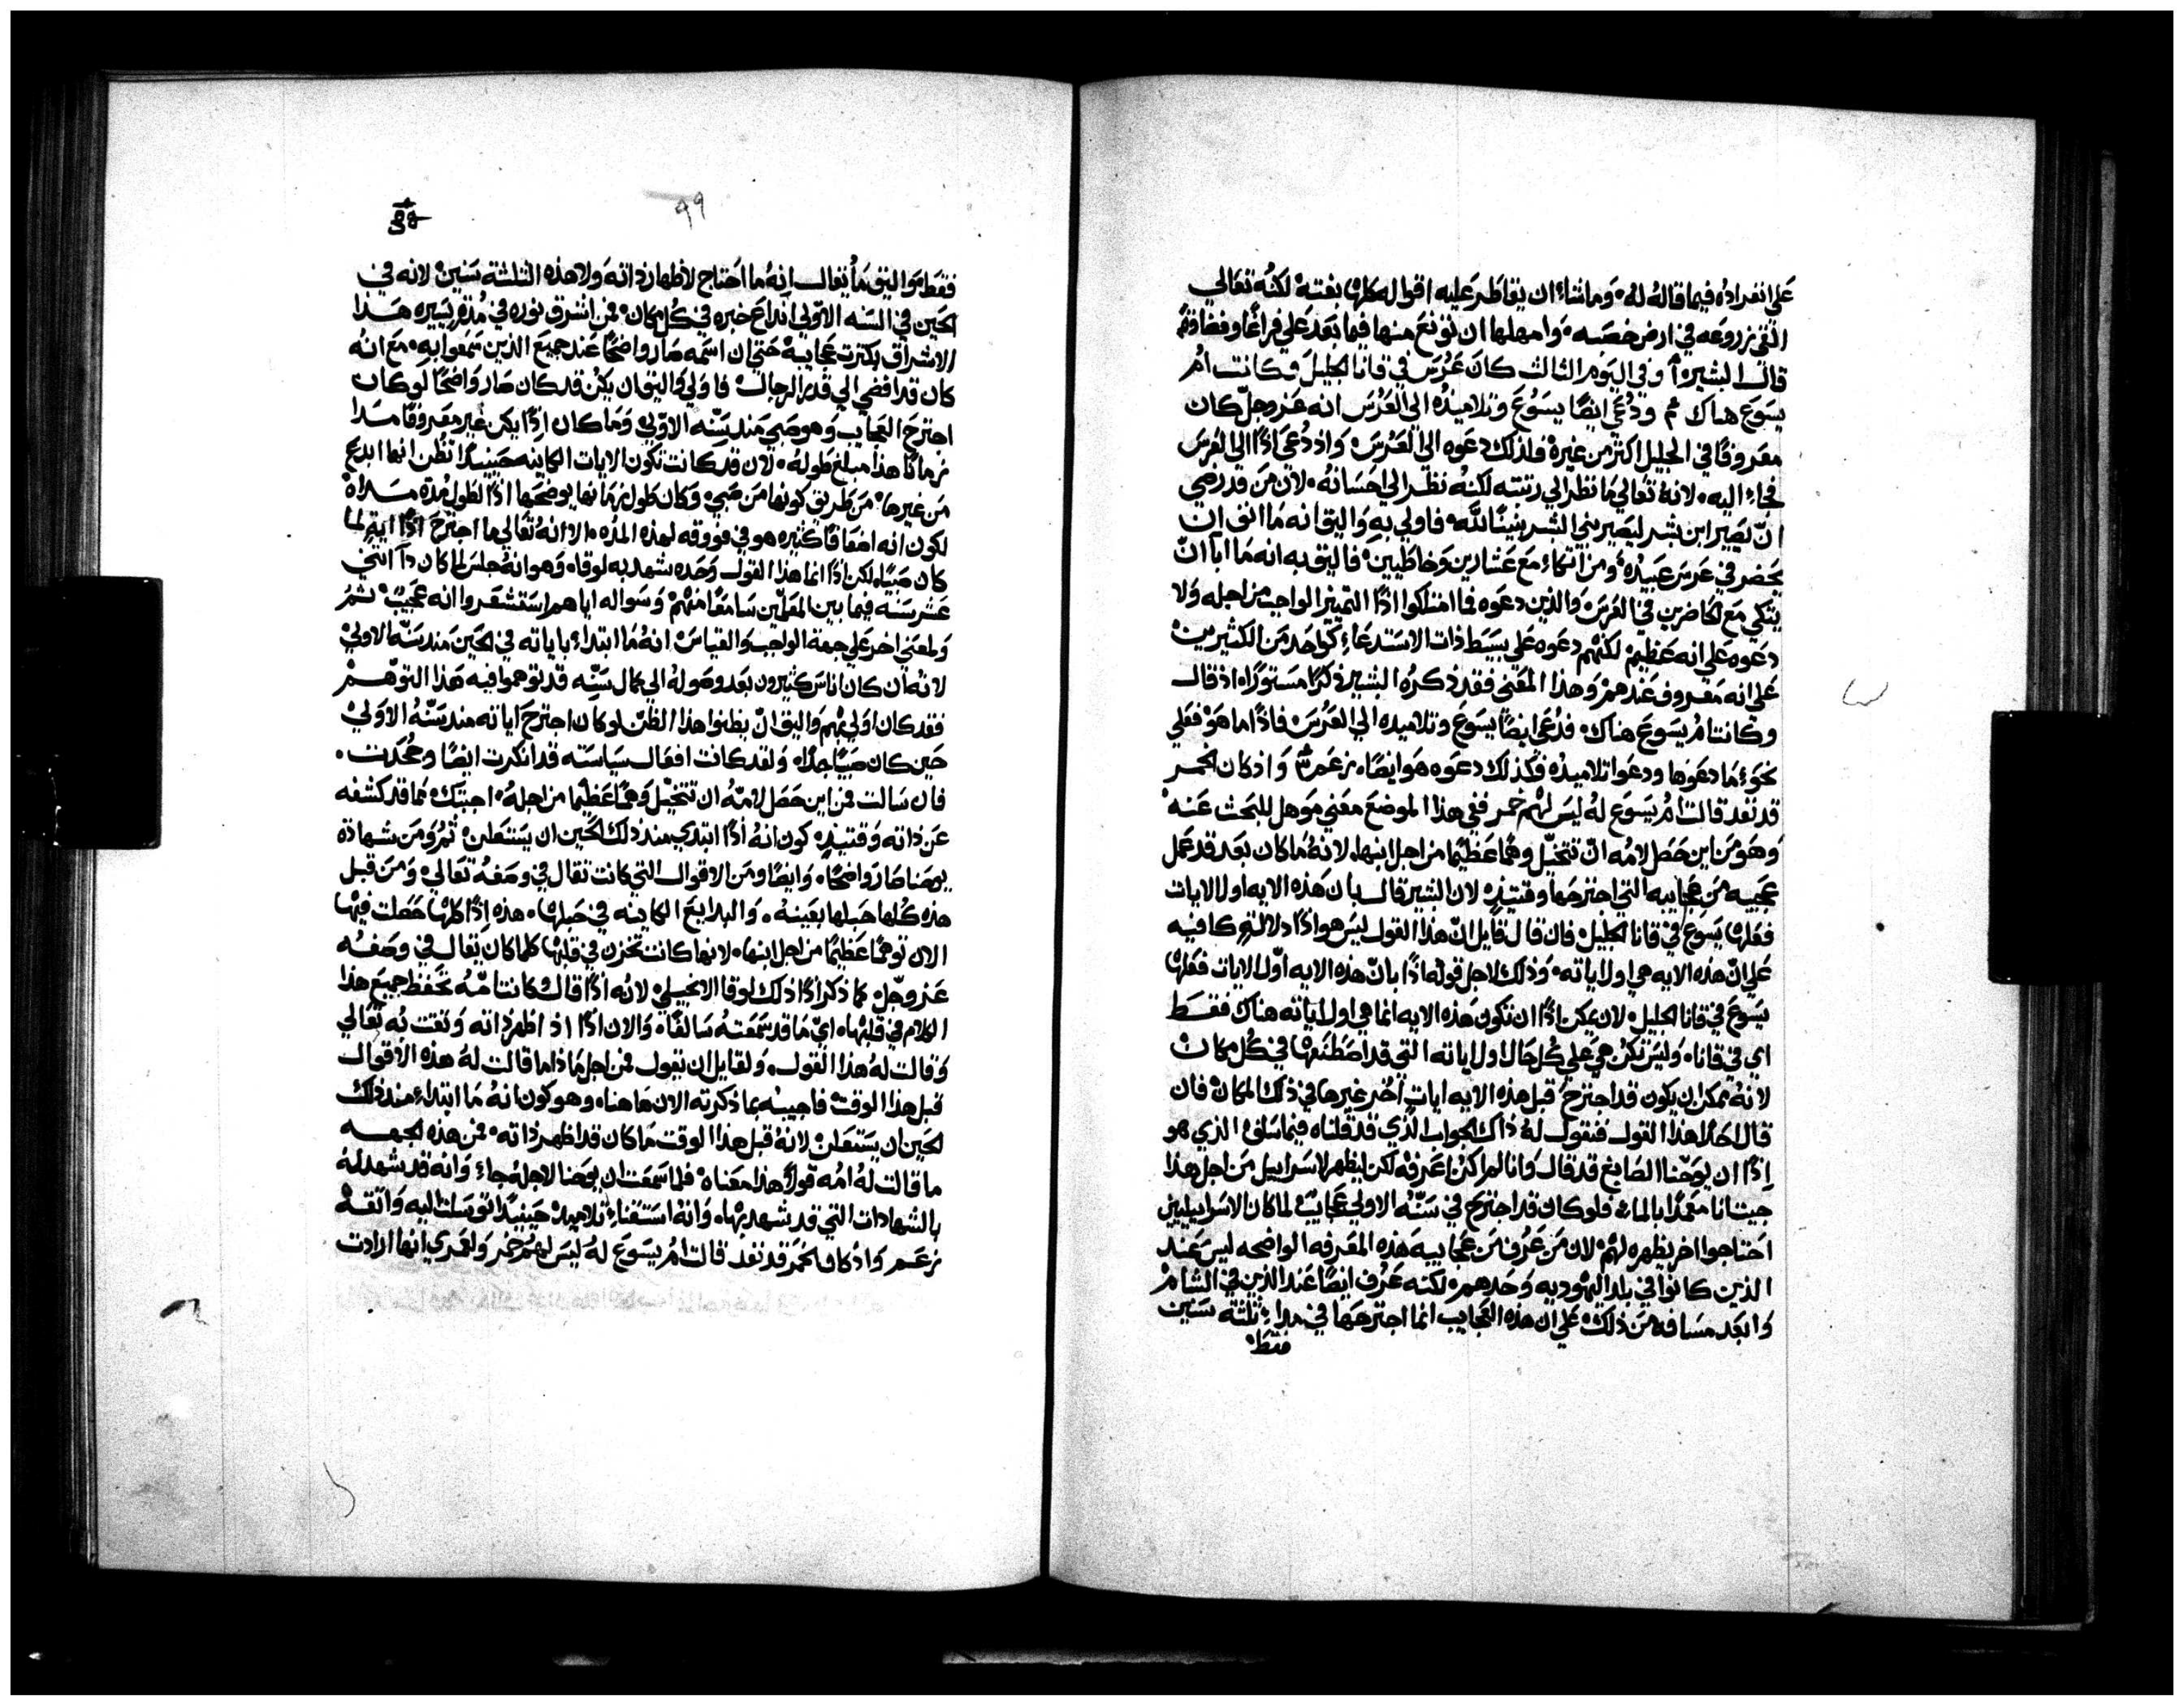 على انفراده فيما قاله له، وما شاء ان يفاطر عليه اقواله كلها بغتة، لكنه تعالى
القى زروعه في ارض خصبه، وامهلها ان تونع منها فيما بعد على فراغا وفضا
قال البشيره وفي اليوم الثالث كان عرس في قانا الجليل وكانت ام
يسوع هناك ودعي ايضا يسوع وتلاميذه الى العرس انه عز وجل كان
معروفا في الجليل اكثر من غيره فلذلك دعوه الى العرس واذ دعي اذا الى العرس
فجاء اليه لانه تعالى ما نظر الى رتبته لكنه نظر الى احسانه لان من قد رضي
ان يصير ابن بشر ليصير بني البشر بنينا لله فاولى به واليق انه ما انف ان
يحضر في عرس عبيده ومن اتكاء مع عشارين وخاطيين فاليق به انه ما ابا ان
يتكي مع الحاضرين في العرس والذين دعوه فما امتلكوا اذا التمييز الواجب من اجله ولا
دعوه على انه عظيم لكنهم دعوه على بسيط ذات الاستدعاء كواحد من الكثيرين
على انه معروف عندهم وهذا المعنى فقد ذكره البشير ذكرا مستورا اذ قال
وكانت ام يسوع هناك فدعي ايضا يسوع وتلاميده الى العرس فاذا ما هو فعلى
نحو ما دعوها ودعوا تلاميذه فكذلك دعوه هو ايضا، زعم واذ كان الخمر
قد نفد قالت ام يسوع له ليس لهم خمر ففي هذا الموضع معنى موهل للبحث عنه
وهو من اين حصل لامه ان تتخيل وهما عظيما من اجل ابنها، لانه ما كان بعد قد عمل
عجيبه من عجايبه التي اجترحها وقتيذ لان البشير قال بان هذه الايه اول الايات
فعلها يسوع في قانا الجليل فان قال قايل ان هذا القول ليس هو اذا دلالة كافيه
على ان هذه الايه هي اول اياته وذلك لاجل قوله اذا بان هذه الايه اول الايات فعلها
يسوع في قانا الجليل لان يمكن اذا ان تكون هذه الايه انما هي اول اياته هناك فقط
اي في قانا، وليس تكن هي على كل حال اول اياته التي قد اصطنعها في كل مكان
لانه ممكن ان يكون قد اجترح قبل هذه الايه ايات اخر غيرها في ذلك المكان فان
قال هذا القول فنقول له ذاك الجواب الذي قد قلناه فيما سلف الذي هو
اذا ان يوحنا الصابغ قد قال وانا لم اكن اعرفه لكن ليظهر لاسراييل من اجل هذا
جيت انا معمدا بالماء فلو كان قد اجترح في سنه الاولى عجايب لما كان الاسراييليين
احتاجوا اخر يظهره لهم لان من عرف من عجايبه هذه المعرفه الواضحه ليس عند
الذين كانوا في بلد اليهوديه وحدهم لكنه عرف ايضا عند الذين في الشام
وابعد مسافه من ذلك على ان هذه العجايب انما اجترحها في ثلثه سنين
فقط
٩٩
فقط واليق ما يقال انه ما احتاج لاظهار ذاته ولا هذه الثلثة سنين لانه في
الحين في السنه الاولى انداع خبره في كل مكان فمن اشرق نوره في مدة يسيره هذا
الاشراق بكثرت عجايبه حتى ان اسمه صار واضحا عند جميع الذين سمعوا به، مع انه
كان قد افضى الى قدر الرجال فاولى واليق ان يكن قد كان صار واضحا لو كان
اجترح العجايب وهو صبي منذ سنه الاولى وما كان اذا يكن غير معروفا
زمانا هذا مبلغ طوله، لان قد كانت تكون الايات الكاينه حينيذا تظن انها ابدع
من غيرها من طريق كونها من صبي وكان طول زمانها يوضحها اذا لطول مدة
لكون انه اضعافا كثيره هو في فووقه لهذه المده، الا انه تعالى ما اجترح اذا اية لما
كان صبيا، لكن اذا انما هذا القول وحده شهد به لوقا، وهو انه جلس لما كان دا اثني
عشر سنه فيما بين المعلمين سامعا منهم وسواله اياهم استشعروا انه عجيب ثم
ولمعني اخر على جهة الواجب والقياس انه ما ابتداء باياته في الحين منذ سنه الاولى
لانه ان كان اناس كثيرون بعد وصوله الى كمال سنه قد توهموا فيه هذا التوهم
فقد كان اولى بهم واليق ان يظنوا هذا الظن لو كان اجترح اياته منذ سنه الاولى
حين كان صبيا جدا، ولقد كانت افعال سياسته قد انكرت ايضا وجحدت.
فان سالت فمن اين حصل لامه ان تتخيل وهما عظيما من اجله، اجبتك مما قد كشفه
عن ذاته وقتيذ كون انه اذا ابتدي منذ ذلك الحين ان يستعلن ثم ومن شهادة
يوحنا صار واضحا، وايضا ومن الاقوال التي كانت تقال في وصفه تعالى ومن قبل
هذه كلها حبلها بعينه، والبدايع الكاينه في حبلها، هذه اذا كلها حصلت فيها
الان توهما عظيما من اجل ابنها، لانها كانت تخزن في قلبها كلما كان يقال في وصفه
عز وجل كما ذكر اذا ذلك لوقا الانجيلي لانه اذا قال كانت امه تحفظ جميع هذا
الكلام في قلبها، اي ما قد سمعته سالفا، والان اذا اذ اظهر ذاته وثقت به تعالى
وقالت له هذا القول، ولقايل ان يقول فمن اجل ماذا ما قالت له هذه الاقوال
قبل هذا الوقت فاجيبه بما ذكرته الان هاهنا، وهو كون انه ما ابتداء منذ ذلك
الحين ان يستعلن لانه قبل هذا الوقت ما كان قد اظهر ذاته، فمن هذه الجهه
ما قالت له امه قولا هذا معناه فلما سمعت ان يوحنا لاجله جاء وانه قد شهد له
بالشهادات التي قد شهد بها، وانه استقناء تلاميذ حينيذا توسلت اليه واثقة
زعم واذ كان الخمر قد نفد قالت ام يسوع له ليس لهم خمر ولعمري انها ارادت